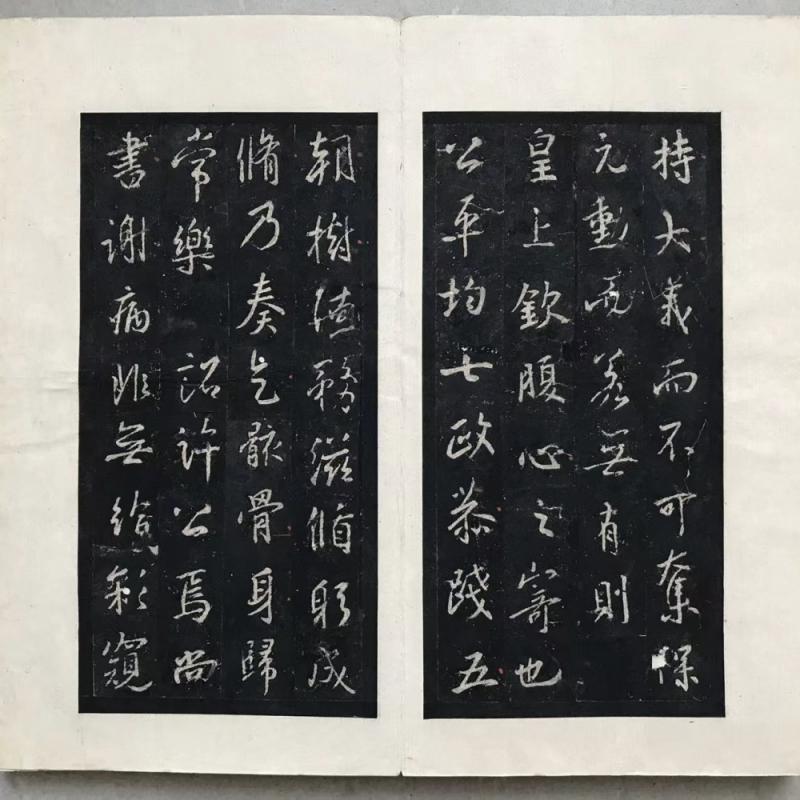 持大義而不可奪保
元勳而若無有則
皇上欽腹心之寄也
公平均七政恭踐五
朝樹德務滋脩躬成
脩乃奏乞骸骨身歸
常樂 詔許公焉尚
書謝病非無彩窺